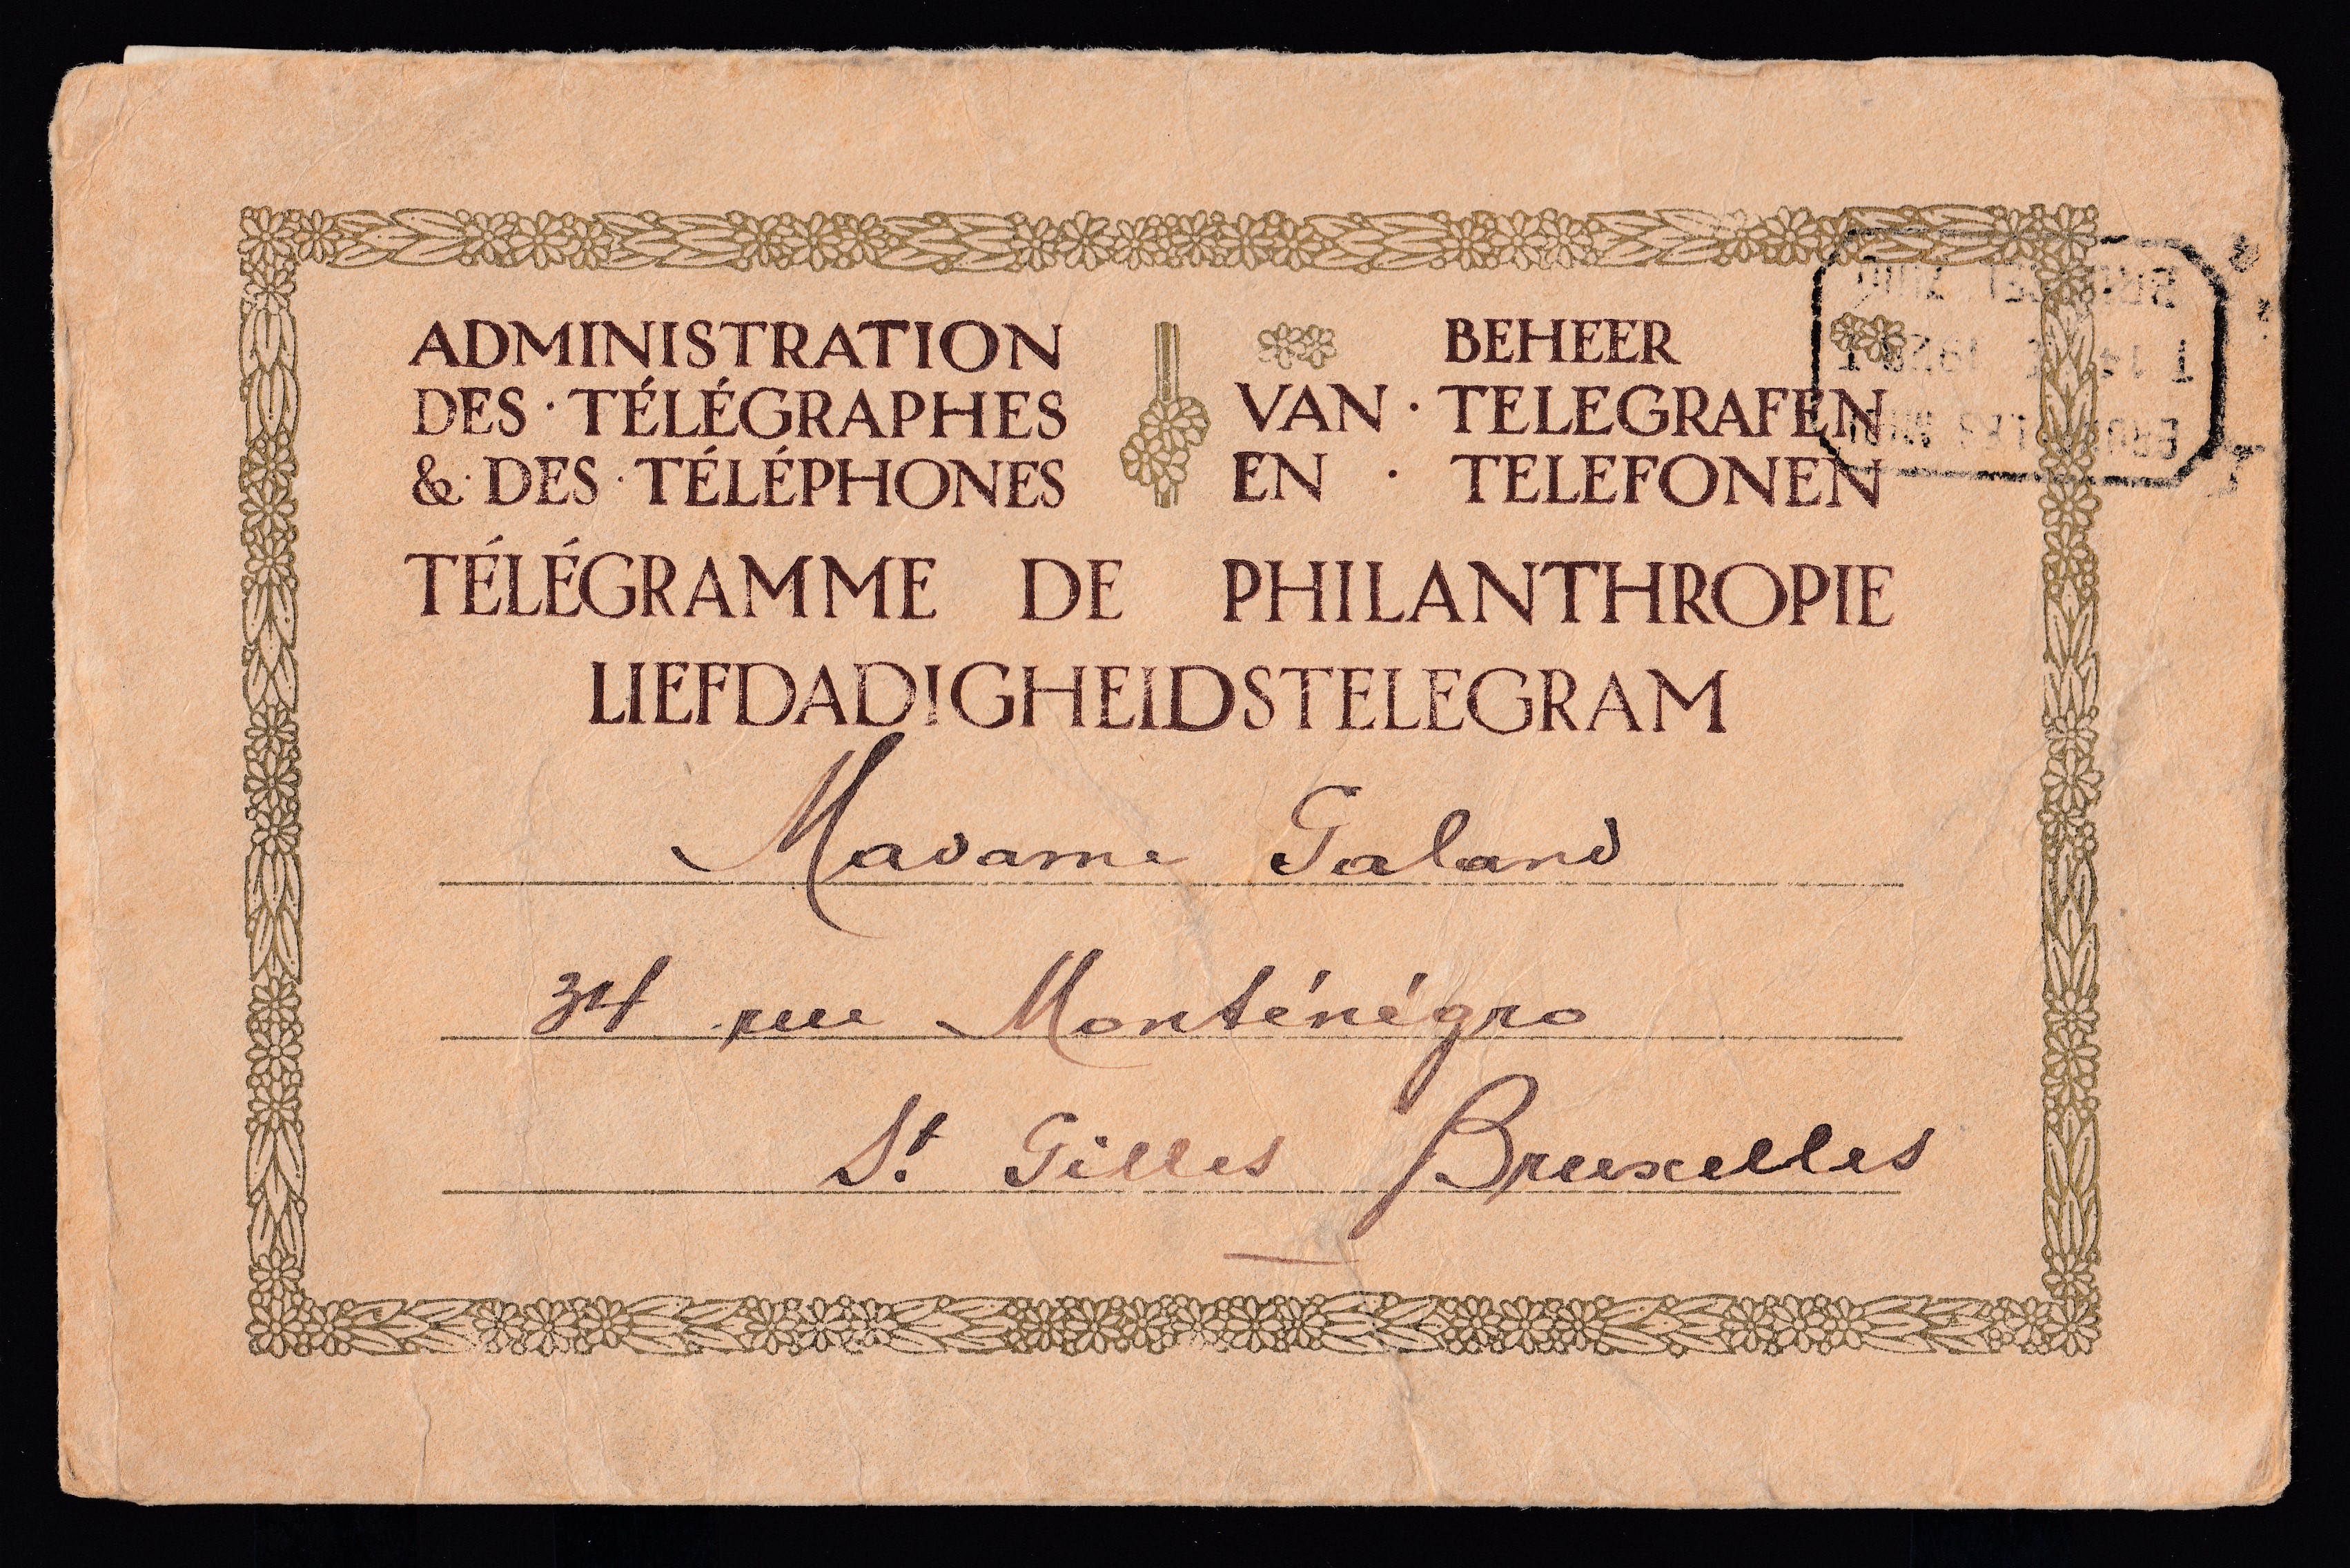 ADMINISTRATION
DES · TÉLÉGRAPHES
& · DES · TÉLÉPHONES
BEHEER
VAN · TELEGRAFEN
EN · TELEFONEN
TÉLÉGRAMME DE PHILANTHROPIE
LIEFDADIGHEIDSTELEGRAM
Madame Galand
34 rue Monténégro
St Gilles Bruxelles